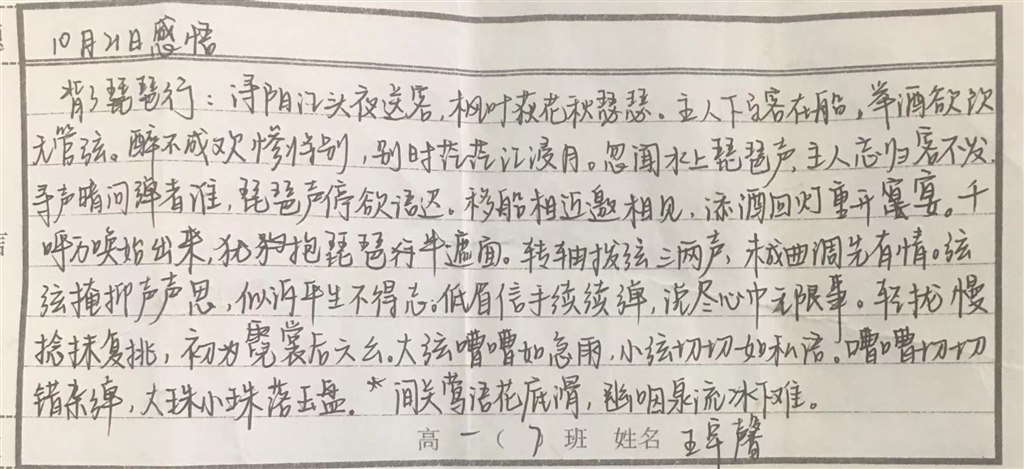 10月21日感悟
背了琵琶行：浔阳江头夜送客，枫叶荻花秋瑟瑟。主人下马客在船，举酒欲饮
无管弦。醉不成欢惨将别，别时茫茫江浸月。忽闻水上琵琶声，主人忘归客不发。
寻声暗问弹者谁，琵琶声停欲语迟。移船相近邀相见，添酒回灯重开宴。千
呼万唤始出来，犹抱琵琶半遮面。转轴拨弦三两声，未成曲调先有情。弦
弦掩抑声声思，似诉平生不得志。低眉信手续续弹，说尽心中无限事。轻拢慢
捻抹复挑，初为霓裳后六幺。大弦嘈嘈如急雨，小弦切切如私语。嘈嘈切切
错杂弹，大珠小珠落玉盘。*间关莺语花底滑，幽咽泉流冰下难。
高一（7）班 姓名 王 馨